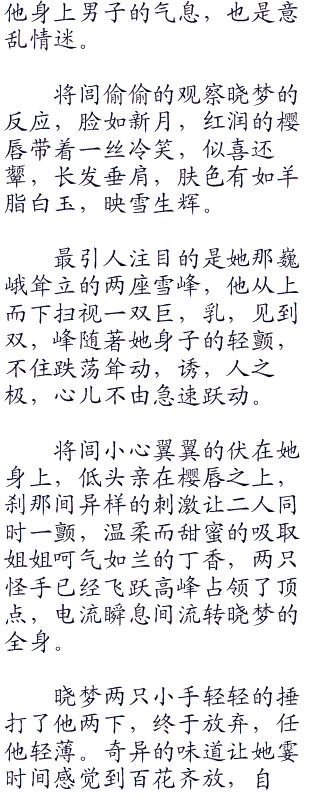 他身上男子的气息，也是意
乱情迷。
将闾偷偷的观察晓梦的
反应，脸如新月，红润的樱
唇带着一丝冷笑，似喜还
颦，长发垂肩，肤色有如羊
脂白玉，映雪生辉。
最引人注目的是她那巍
峨耸立的两座雪峰，他从上
而下扫视一双巨，乳，见到
双，峰随著她身子的轻颤，
不住跌荡耸动，诱，人之
极，心儿不由急速跃动。
将闾小心翼翼的伏在她
身上，低头亲在樱唇之上，
刹那间异样的刺激让二人同
时一颤，温柔而甜蜜的吸取
姐姐呵气如兰的丁香，两只
怪手已经飞跃高峰占领了顶
点，电流瞬息间流转晓梦的
全身。
晓梦两只小手轻轻的捶
打了他两下，终于放弃，任
他轻薄。奇异的味道让她霎
时间感觉到百花齐放，自